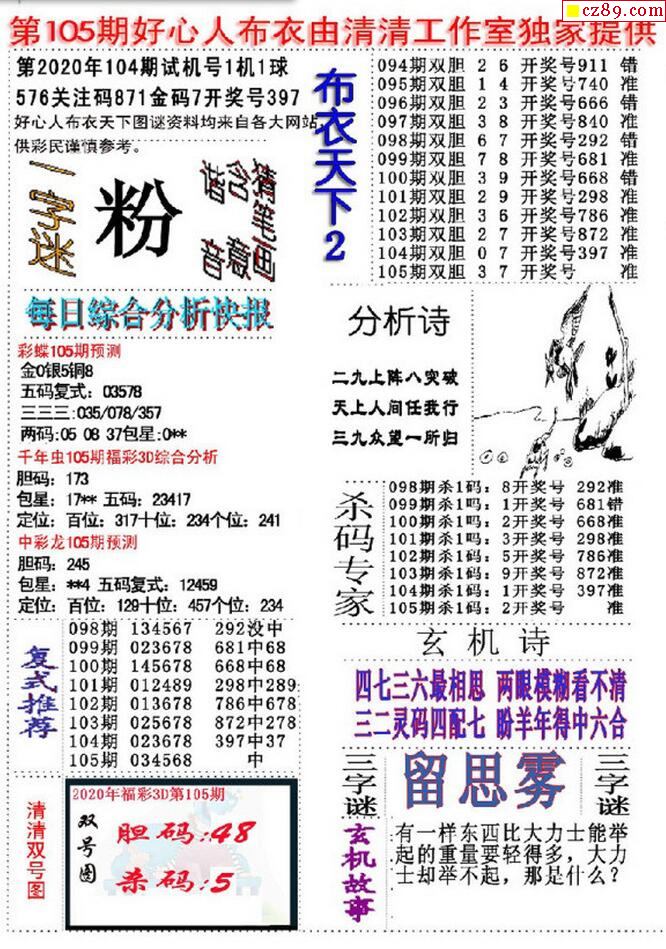 cz89.com
第105期好心人布衣由清清工作室独家提供
第2020年104期试机号1机1球
576关注码871金码7开奖号397
好心人布衣天下图谜资料均来自各大网站
供彩民谨慎参考。
一字迷
粉
谐音
含意
猜笔画
每日综合分析快报
彩蝶105期预测
金0银5铜8
五码复式：03578
三三三:035/078/357
两码:05 08 37包星:0**
千年虫105期福彩3D综合分析
胆码：173
包星：17** 五码：23417
定位：百位：317十位：234个位：241
中彩龙105期预测
胆码：245
包星：**4 五码复式：12459
定位：百位：129十位：457个位：234
复式推荐
098期 134567 292没中
099期 023678 681中68
100期 145678 668中68
101期 012489 298中289
102期 013678 786中678
103期 025678 872中278
104期 023678 397中37
105期 034568 中
清清双号图
2020年福彩3D第105期
双号图
胆码:48
杀码:5
布衣天下2
094期双胆 2 6 开奖号911 错
095期双胆 1 4 开奖号740 准
096期双胆 2 3 开奖号666 错
097期双胆 3 8 开奖号840 准
098期双胆 6 7 开奖号292 错
099期双胆 7 8 开奖号681 准
100期双胆 3 9 开奖号668 错
101期双胆 2 9 开奖号298 准
102期双胆 3 6 开奖号786 准
103期双胆 2 7 开奖号872 准
104期双胆 0 7 开奖号397 准
105期双胆 3 7 开奖号 准
分析诗
二九上阵八突破
天上人间任我行
三九众望一所归
杀码专家
098期杀1码：8开奖号 292准
099期杀1吗：1开奖号 681错
100期杀1吗：2开奖号 668准
101期杀1吗：3开奖号 298准
102期杀1码：5开奖号 786准
103期杀1码：9开奖号 872准
104期杀1码：1开奖号 397准
105期杀1码：2开奖号 准
玄机诗
四七三六最相思 两眼模糊看不清
三二灵码四配七 盼羊年得中六合
三字谜
留思雾
三字谜
玄机故事
有一样东西比大力士能举
起的重量要轻得多，大力
士却举不起，那是什么？